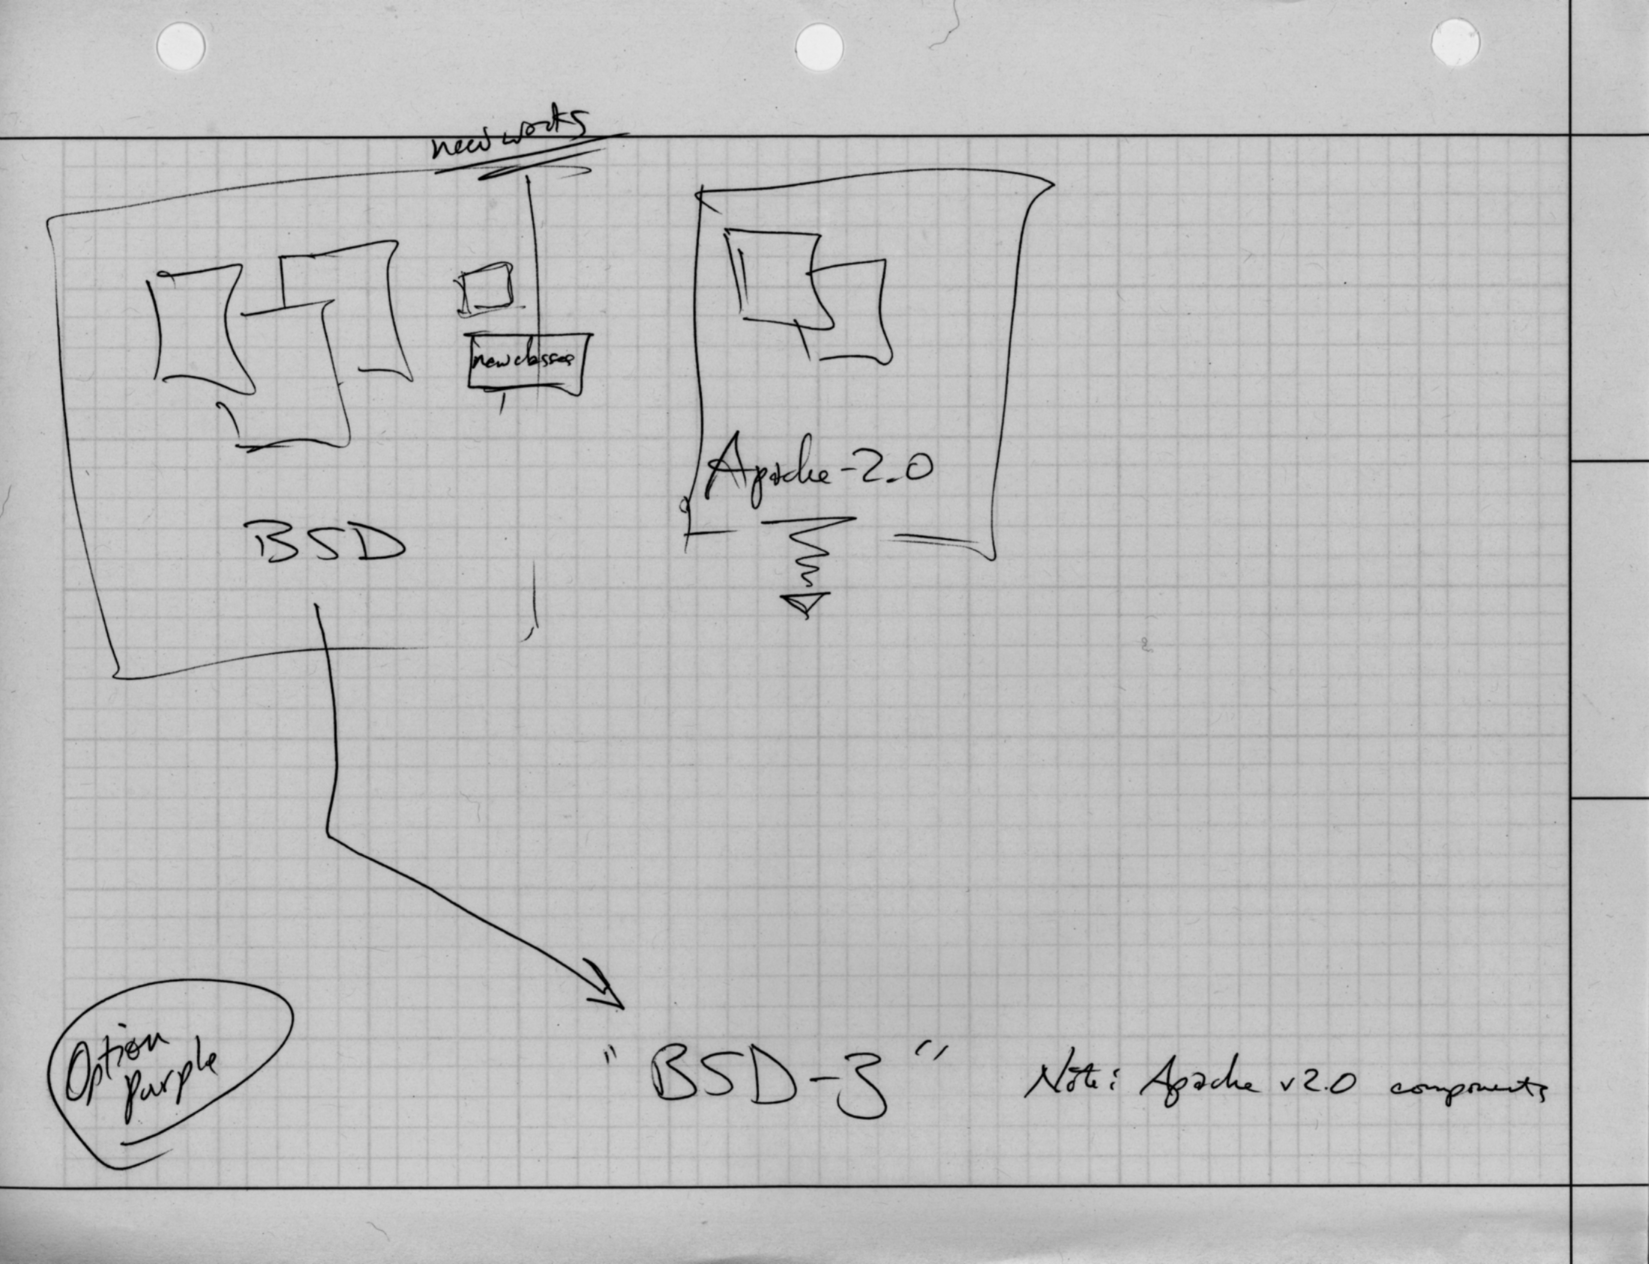 new works
new classes
Apache-2.0
BSD
Option
purple
"BSD-3"
Note: Apache v2.0 components